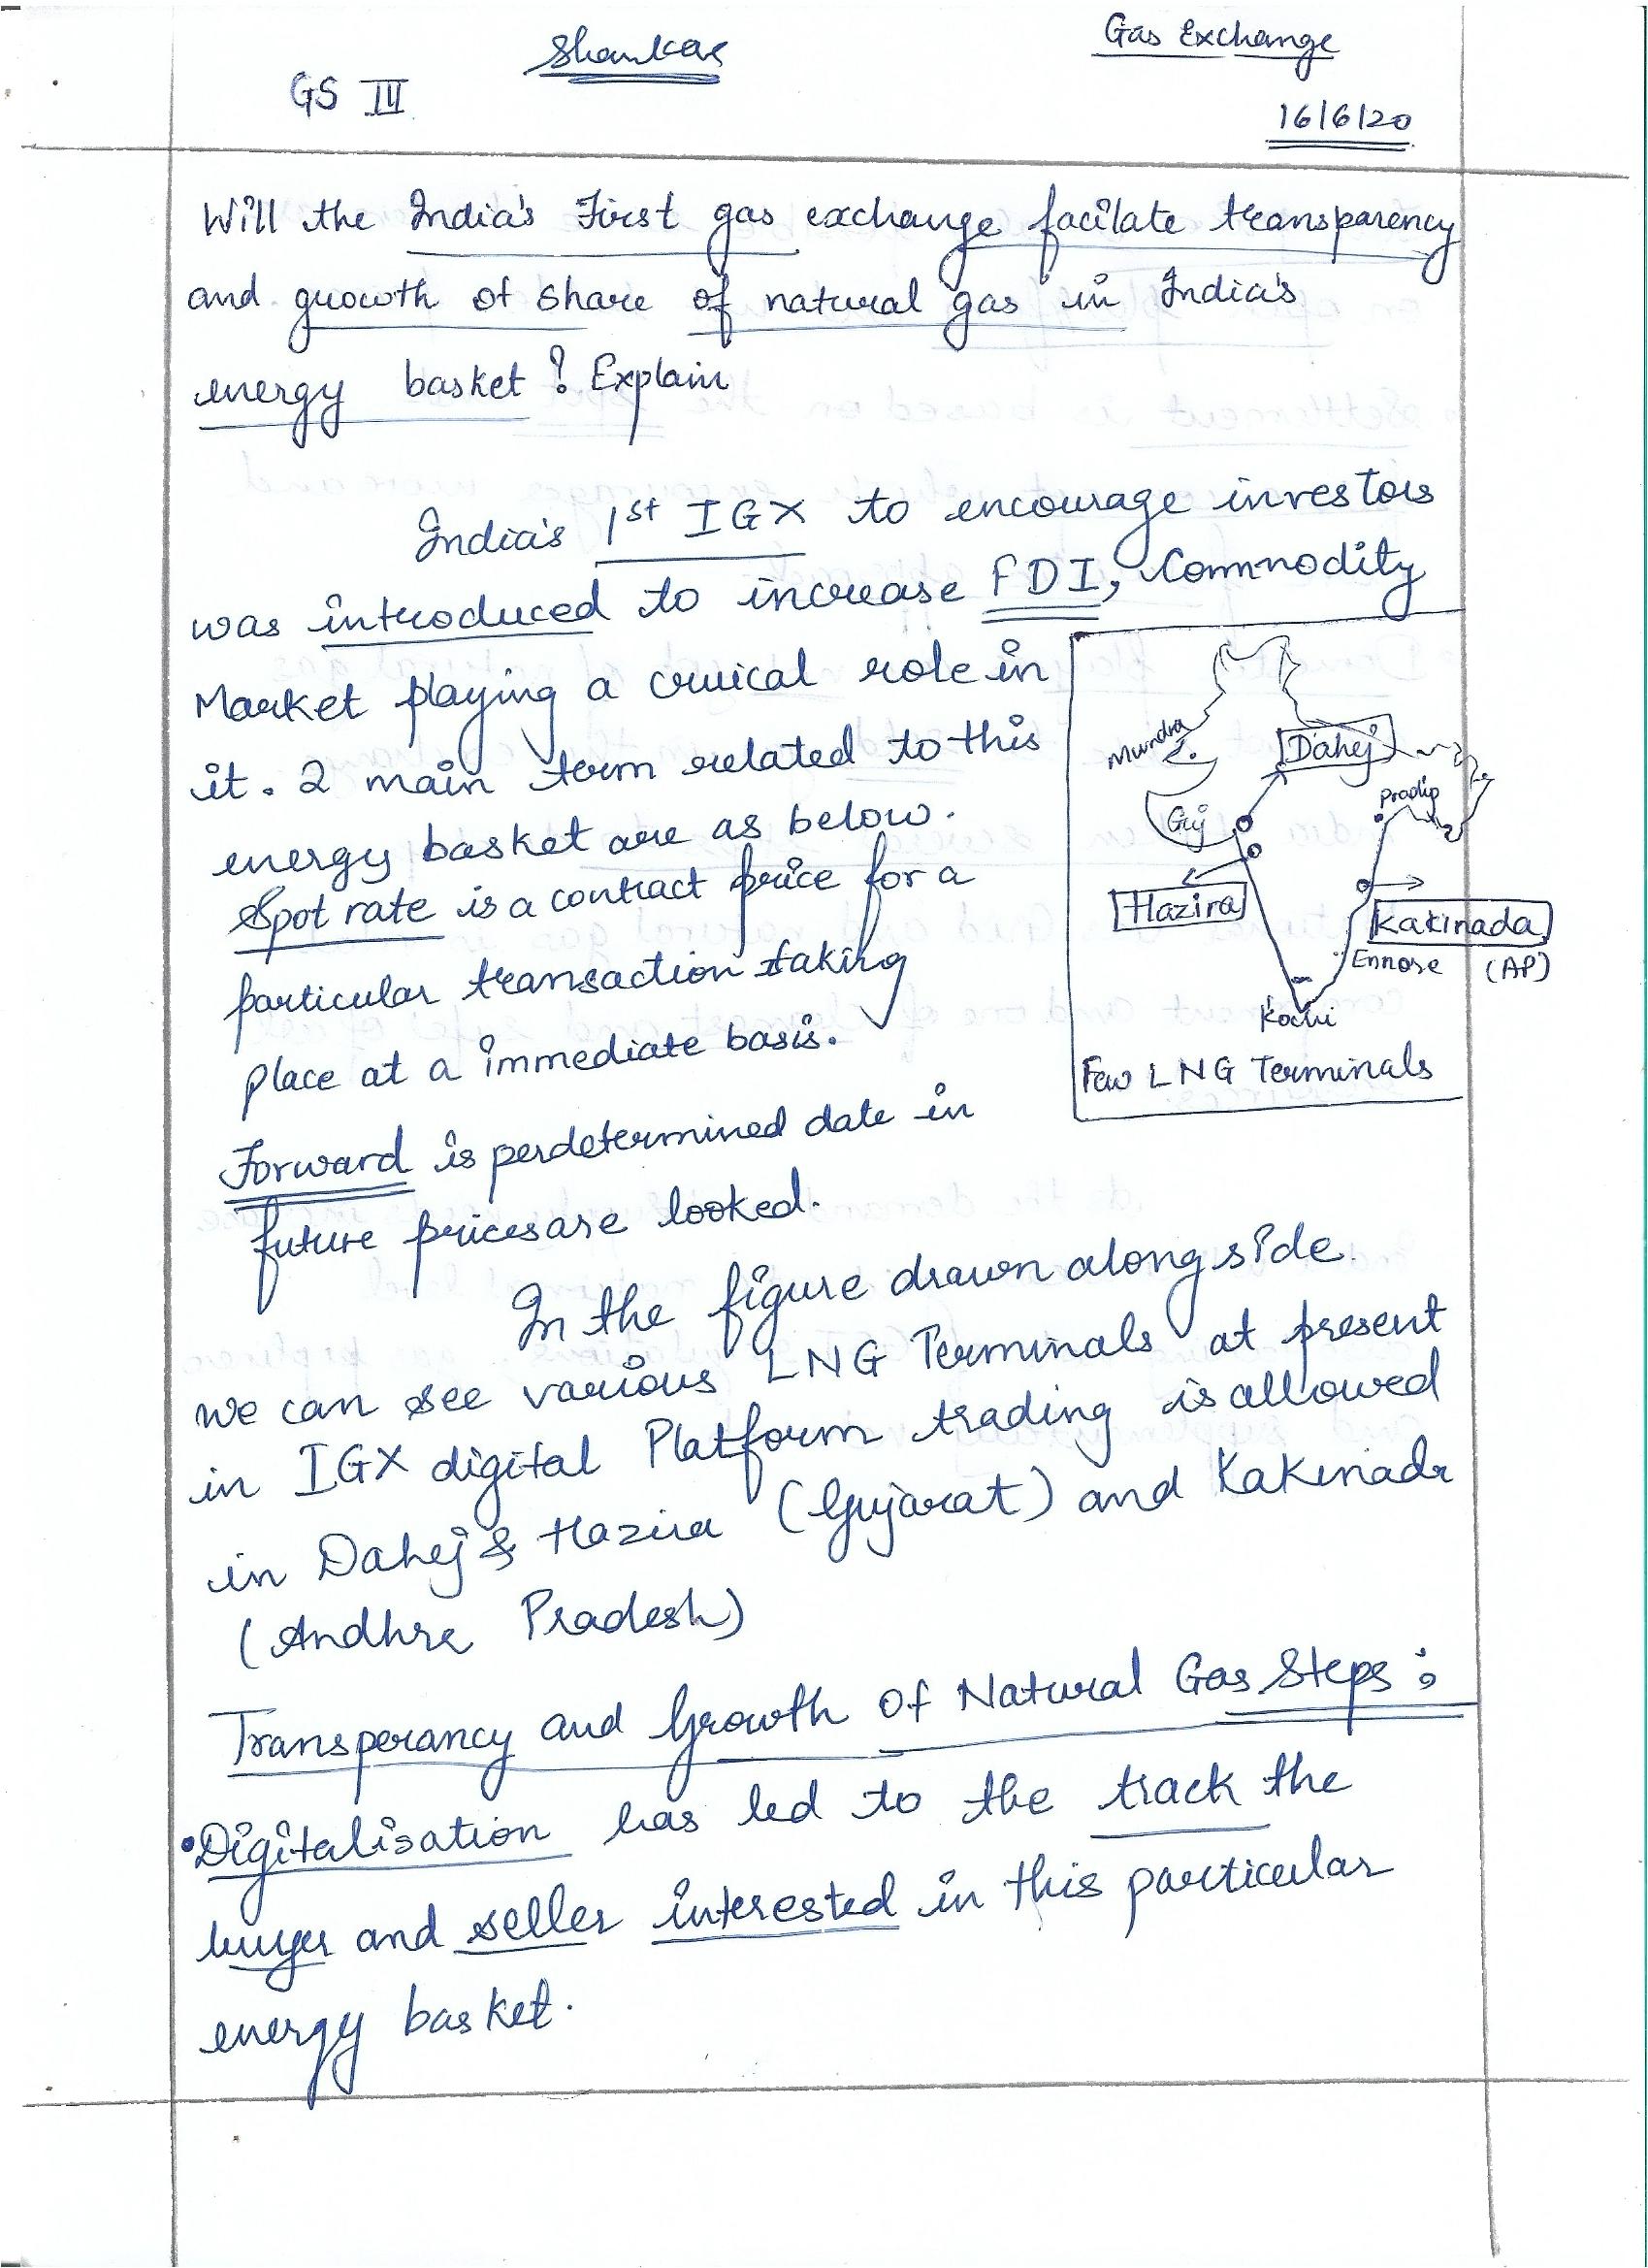 Shankar
Gas Exchange
GS III
16/6/20
Will the India's First gas exchange facilate transparency
and growth of share of natural gas in India's
energy basket? Explain
India's 1st IGX to encourage investors
was introduced to increase FDI, Commodity
Market playing a crucical role in
it. 2 main term related to this
energy basket are as below.
Spot rate is a contract price for a
particular transaction taking
place at a immediate basis.
Forward is perdetermined date in
future prices are looked.
Mundra
Dahej
Pradip
Guj
Hazira
Kakinada
Ennore (AP)
Kochi
Few LNG Terminals
In the figure drawn along side.
we can see various LNG Terminals at present
in IGX digital Platform trading is allowed
in Dahej & Hazira (Gujarat) and Kakinada
(Andhra Pradesh)
Transperancy and Growth Of Natural Gas Steps:
• Digitalisation has led to the track the
buyer and seller interested in this particular
energy basket.